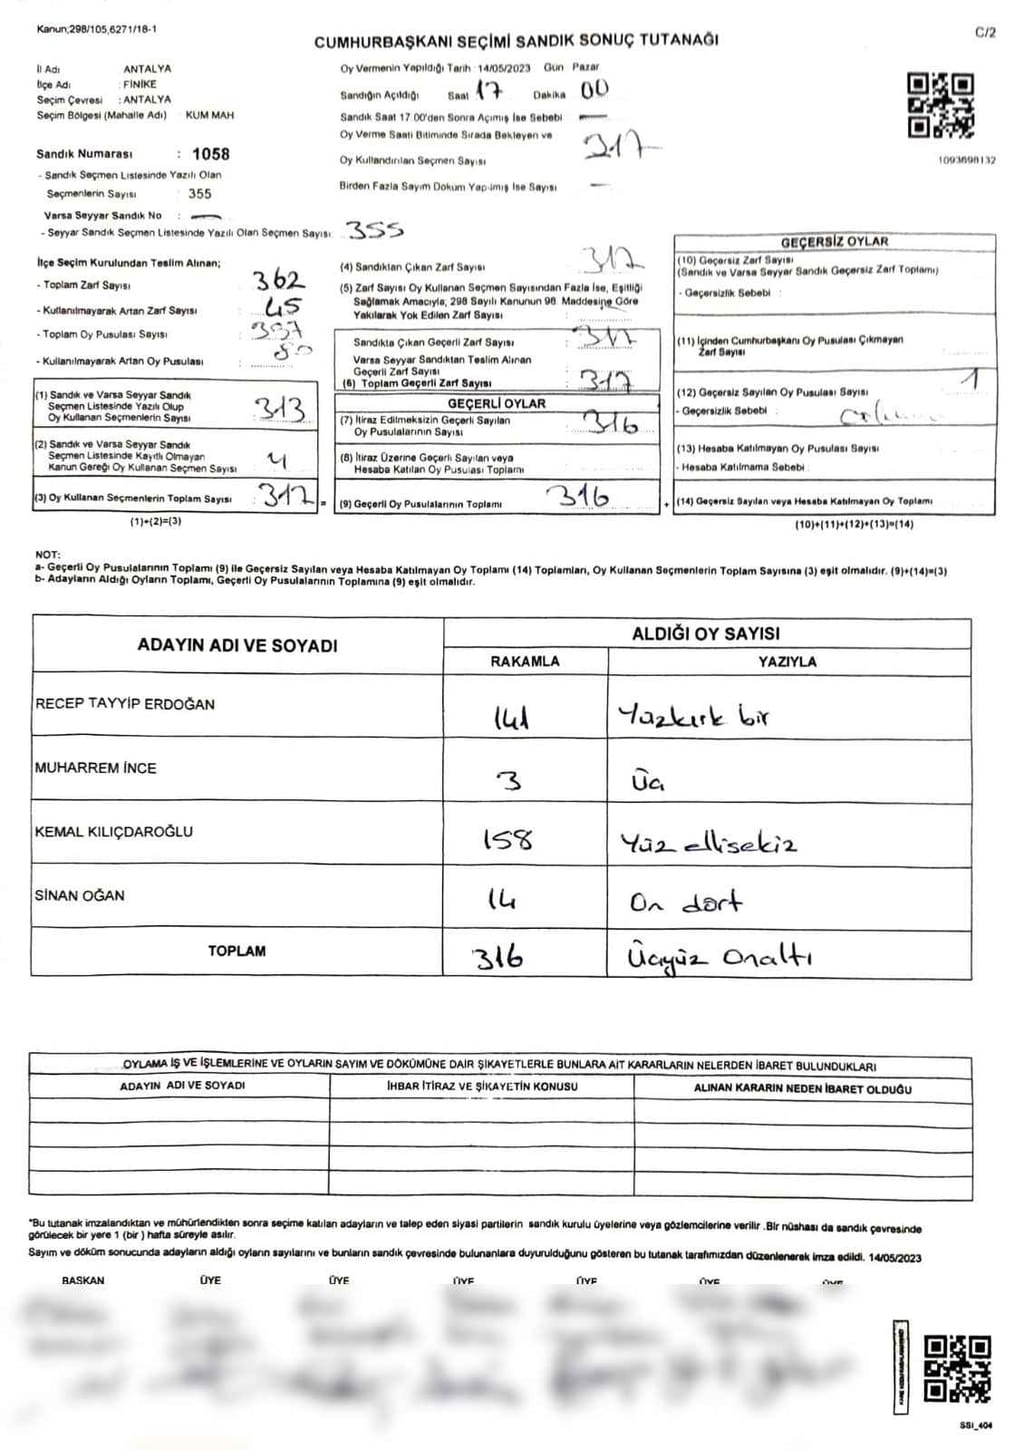 Kanun;298/105,6271/18-1
C/2
CUMHURBAŞKANI SEÇİMİ SANDIK SONUÇ TUTANAĞI
İl Adı ANTALYA
İlçe Adı : FİNİKE
Seçim Çevresi : ANTALYA
Seçim Bölgesi (Mahalle Adı) KUM MAH
Sandık Numarası : 1058
- Sandık Seçmen Listesinde Yazılı Olan
Seçmenlerin Sayısı : 355
Varsa Seyyar Sandık No : —
- Seyyar Sandık Seçmen Listesinde Yazılı Olan Seçmen Sayısı: 355
Oy Vermenin Yapıldığı Tarih 14/05/2023 Gün Pazar
Sandığın Açıldığı Saat 17 Dakika 00
Sandık Saat 17 00'den Sonra Açımış İse Sebebi —
Oy Verme Saati Bitiminde Sırada Bekleyen ve
Oy Kullandırılan Seçmen Sayısı 317
Birden Fazla Sayım Dokum Yapılmış İse Sayısı —
1093690132
İlçe Seçim Kurulundan Teslim Alınan;
- Toplam Zarf Sayısı : 362
- Kullanılmayarak Artan Zarf Sayısı : 45
- Toplam Oy Pusulası Sayısı : 397
- Kullanılmayarak Artan Oy Pusulası : 80
(1) Sandık ve Varsa Seyyar Sandık
Seçmen Listesinde Yazılı Olup
Oy Kullanan Seçmenlerin Sayısı : 313
(2) Sandık ve Varsa Seyyar Sandık
Seçmen Listesinde Kayıtlı Olmayan
Kanun Gereği Oy Kullanan Seçmen Sayısı : 4
(3) Oy Kullanan Seçmenlerin Toplam Sayısı : 317
(1)+(2)=(3)
(4) Sandıktan Çıkan Zarf Sayısı : 317
(5) Zarf Sayısı Oy Kullanan Seçmen Sayısından Fazla İse, Eşitliği
Sağlamak Amacıyla, 298 Sayılı Kanunun 98. Maddesine Göre
Yakılarak Yok Edilen Zarf Sayısı :
Sandıkta Çıkan Geçerli Zarf Sayısı : 317
Varsa Seyyar Sandıktan Teslim Alınan
Geçerli Zarf Sayısı
(6) Toplam Geçerli Zarf Sayısı : 317
GEÇERLİ OYLAR
(7) İtiraz Edilmeksizin Geçerli Sayılan
Oy Pusulalarının Sayısı : 316
(8) İtiraz Üzerine Geçerli Sayılan veya
Hesaba Katılan Oy Pusulası Toplamı :
= (9) Geçerli Oy Pusulalarının Toplamı 316
GEÇERSİZ OYLAR
(10) Geçersiz Zarf Sayısı
(Sandık ve Varsa Seyyar Sandık Geçersiz Zarf Toplamı)
- Geçersizlik Sebebi :
(11) İçinden Cumhurbaşkanı Oy Pusulası Çıkmayan
Zarf Sayısı
(12) Geçersiz Sayılan Oy Pusulası Sayısı : 1
- Geçersizlik Sebebi :
(13) Hesaba Katılmayan Oy Pusulası Sayısı
- Hesaba Katılmama Sebebi
+ (14) Geçersiz Sayılan veya Hesaba Katılmayan Oy Toplamı
(10)+(11)+(12)+(13)=(14)
NOT:
a- Geçerli Oy Pusulalarının Toplamı (9) ile Geçersiz Sayılan veya Hesaba Katılmayan Oy Toplamı (14) Toplamları, Oy Kullanan Seçmenlerin Toplam Sayısına (3) eşit olmalıdır. (9)+(14)=(3)
b- Adayların Aldığı Oyların Toplamı, Geçerli Oy Pusulalarının Toplamına (9) eşit olmalıdır.
ADAYIN ADI VE SOYADI
ALDIĞI OY SAYISI
RAKAMLA YAZIYLA
RECEP TAYYİP ERDOĞAN 141 Yüzkırk bir
MUHARREM İNCE 3 Üç
KEMAL KILIÇDAROĞLU 158 Yüz ellisekiz
SİNAN OĞAN 14 On dört
TOPLAM 316 Üçyüz Onaltı
OYLAMA İŞ VE İŞLEMLERİNE VE OYLARIN SAYIM VE DÖKÜMÜNE DAİR ŞİKAYETLERLE BUNLARA AİT KARARLARIN NELERDEN İBARET BULUNDUKLARI
ADAYIN ADI VE SOYADI İHBAR İTİRAZ VE ŞİKAYETİN KONUSU ALINAN KARARIN NEDEN İBARET OLDUĞU
*Bu tutanak imzalandıktan ve mühürlendikten sonra seçime katılan adayların ve talep eden siyasi partilerin sandık kurulu üyelerine veya gözlemcilerine verilir .Bir nüshası da sandık çevresinde
görülecek bir yere 1 (bir ) hafta süreyle asılır.
Sayım ve döküm sonucunda adayların aldığı oyların sayılarını ve bunların sandık çevresinde bulunanlara duyurulduğunu gösteren bu tutanak tarafımızdan düzenlenerek imza edildi. 14/05/2023
BASKAN ÜYE ÜYE ÜYE ÜYE ÜYE ÜYE
SSİ_404